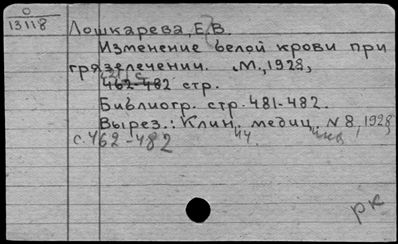 О
13118
Лошкарева, Е. В.
Изменение белой крови при
грязелечении. М., 1928,
462-482 стр.
Библиогр. стр. 481-482.
Вырез.: Клин. медиц., N 8, 1928,
с. 462-482
рк